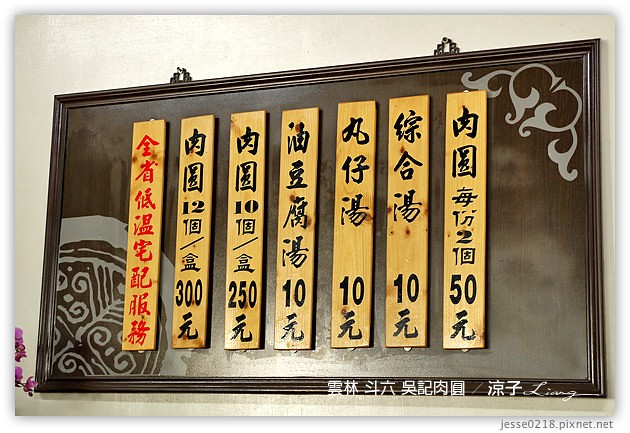 肉圓每份2個50元
綜合湯10元
丸仔湯10元
油豆腐湯10元
肉圓10個/盒250元
肉圓12個/盒300元
全省低溫宅配服務
雲林 斗六 吳記肉圓 / 涼子 Liang
jesse0218.pixnet.net